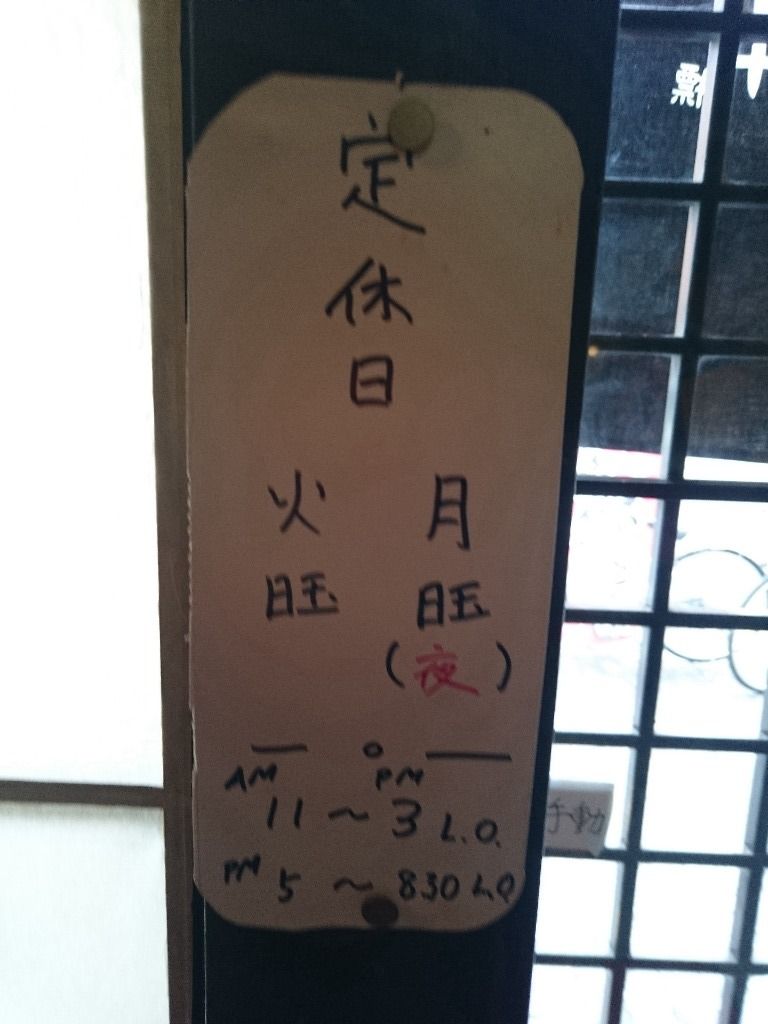 定休日
月旺
(夜)
火旺
AM 11 〜 PM 3 L.O.
PM 5 〜 830 L.O
手動